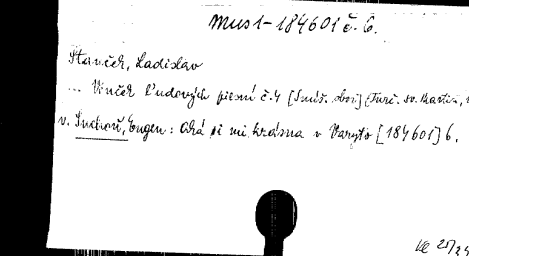 Mus 1-184601 č. 6.
Stanček, Ladislav
... Vinček ľudových piesní č. 4 [Smieš. sbor] (Turč. sv. Martin,
v. Suchoň, Eugen: Aká si mi krásna v Varyto [184601] 6.